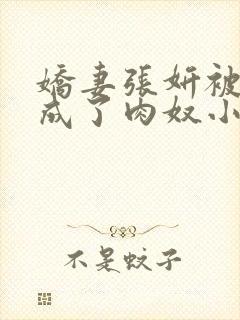 嬌妻張妍被
成了肉奴小
不是蚊子